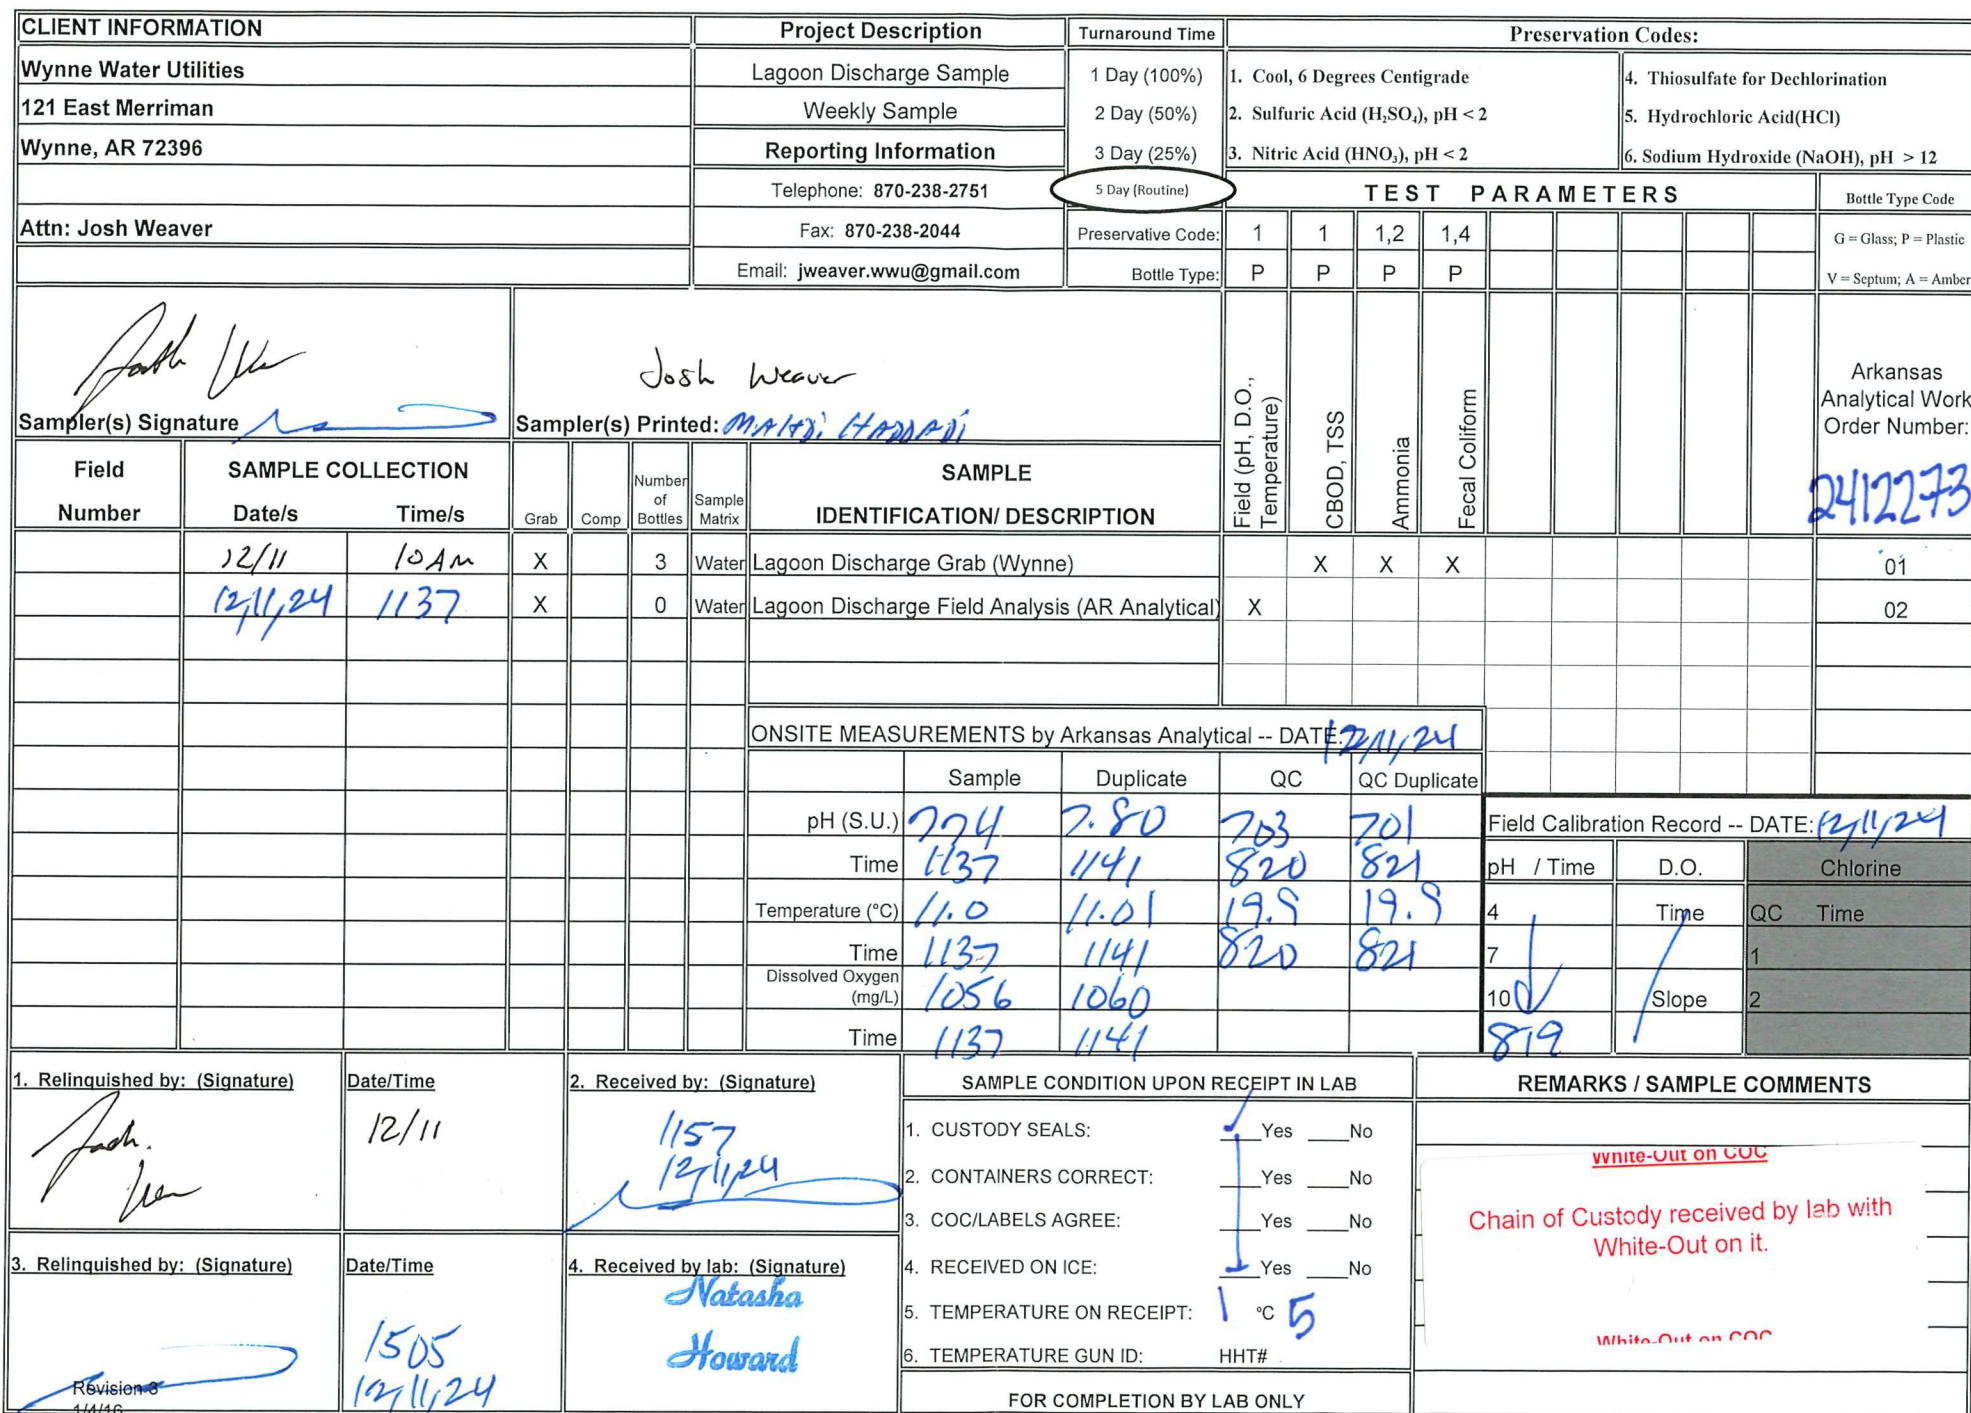 CLIENT INFORMATION
Wynne Water Utilities
121 East Merriman
Wynne, AR 72396
Attn: Josh Weaver
Project Description
Lagoon Discharge Sample
Weekly Sample
Reporting Information
Telephone: 870-238-2751
Fax: 870-238-2044
Email: jweaver.wwu@gmail.com
Turnaround Time
1 Day (100%)
2 Day (50%)
3 Day (25%)
5 Day (Routine)
Preservation Codes:
1. Cool, 6 Degrees Centigrade
2. Sulfuric Acid (H₂SO₄), pH < 2
3. Nitric Acid (HNO₃), pH < 2
4. Thiosulfate for Dechlorination
5. Hydrochloric Acid(HCl)
6. Sodium Hydroxide (NaOH), pH > 12
TEST PARAMETERS
Bottle Type Code
Preservative Code: 1 1 1,2 1,4
G = Glass; P = Plastic
Bottle Type: P P P P
V = Septum; A = Amber
Sampler(s) Signature
Josh Weaver
Sampler(s) Printed: MAHDI HADDADI
Field (pH, D.O., Temperature)
CBOD, TSS
Ammonia
Fecal Coliform
Arkansas
Analytical Work
Order Number:
2412273
Field
Number
SAMPLE COLLECTION
Date/s Time/s
Grab
Comp
Number
of
Bottles
Sample
Matrix
SAMPLE
IDENTIFICATION/ DESCRIPTION
12/11 10 AM X 3 Water Lagoon Discharge Grab (Wynne) X X X 01
12/11/24 1137 X 0 Water Lagoon Discharge Field Analysis (AR Analytical) X 02
ONSITE MEASUREMENTS by Arkansas Analytical -- DATE: 12/11/24
Sample Duplicate QC QC Duplicate
pH (S.U.) 774 7.80 703 701
Time 1137 1141 820 821
Temperature (°C) 11.0 11.01 19.9 19.9
Time 1137 1141 820 821
Dissolved Oxygen
(mg/L) 1056 1060
Time 1137 1141
Field Calibration Record -- DATE: 12/11/24
pH / Time D.O. Chlorine
4 Time QC Time
7 1
10 Slope 2
819
1. Relinquished by: (Signature)
Date/Time
12/11
2. Received by: (Signature)
1157
12/11/24
3. Relinquished by: (Signature)
Date/Time
1505
12/11/24
4. Received by lab: (Signature)
Natasha
Howard
Revision 3
1/4/16
SAMPLE CONDITION UPON RECEIPT IN LAB
1. CUSTODY SEALS: ___Yes ___No
2. CONTAINERS CORRECT: ___Yes ___No
3. COC/LABELS AGREE: ___Yes ___No
4. RECEIVED ON ICE: ___Yes ___No
5. TEMPERATURE ON RECEIPT: 1 °C 5
6. TEMPERATURE GUN ID: HHT#
FOR COMPLETION BY LAB ONLY
REMARKS / SAMPLE COMMENTS
White-Out on COC
Chain of Custody received by lab with
White-Out on it.
White-Out on COC